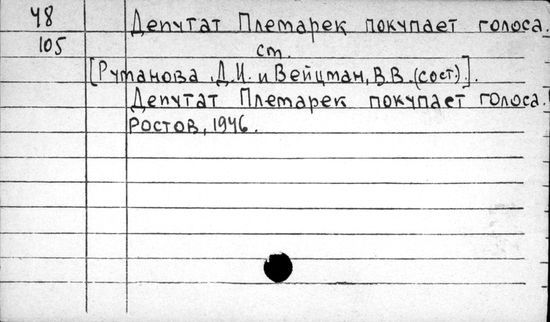 Ч8 Депутат Племарек покупает голоса.
105 ст.
[Руманова Д.И. и Вейцман, В.В. (сост.)].
Депутат Племарек покупает голоса.
Ростов, 1946.